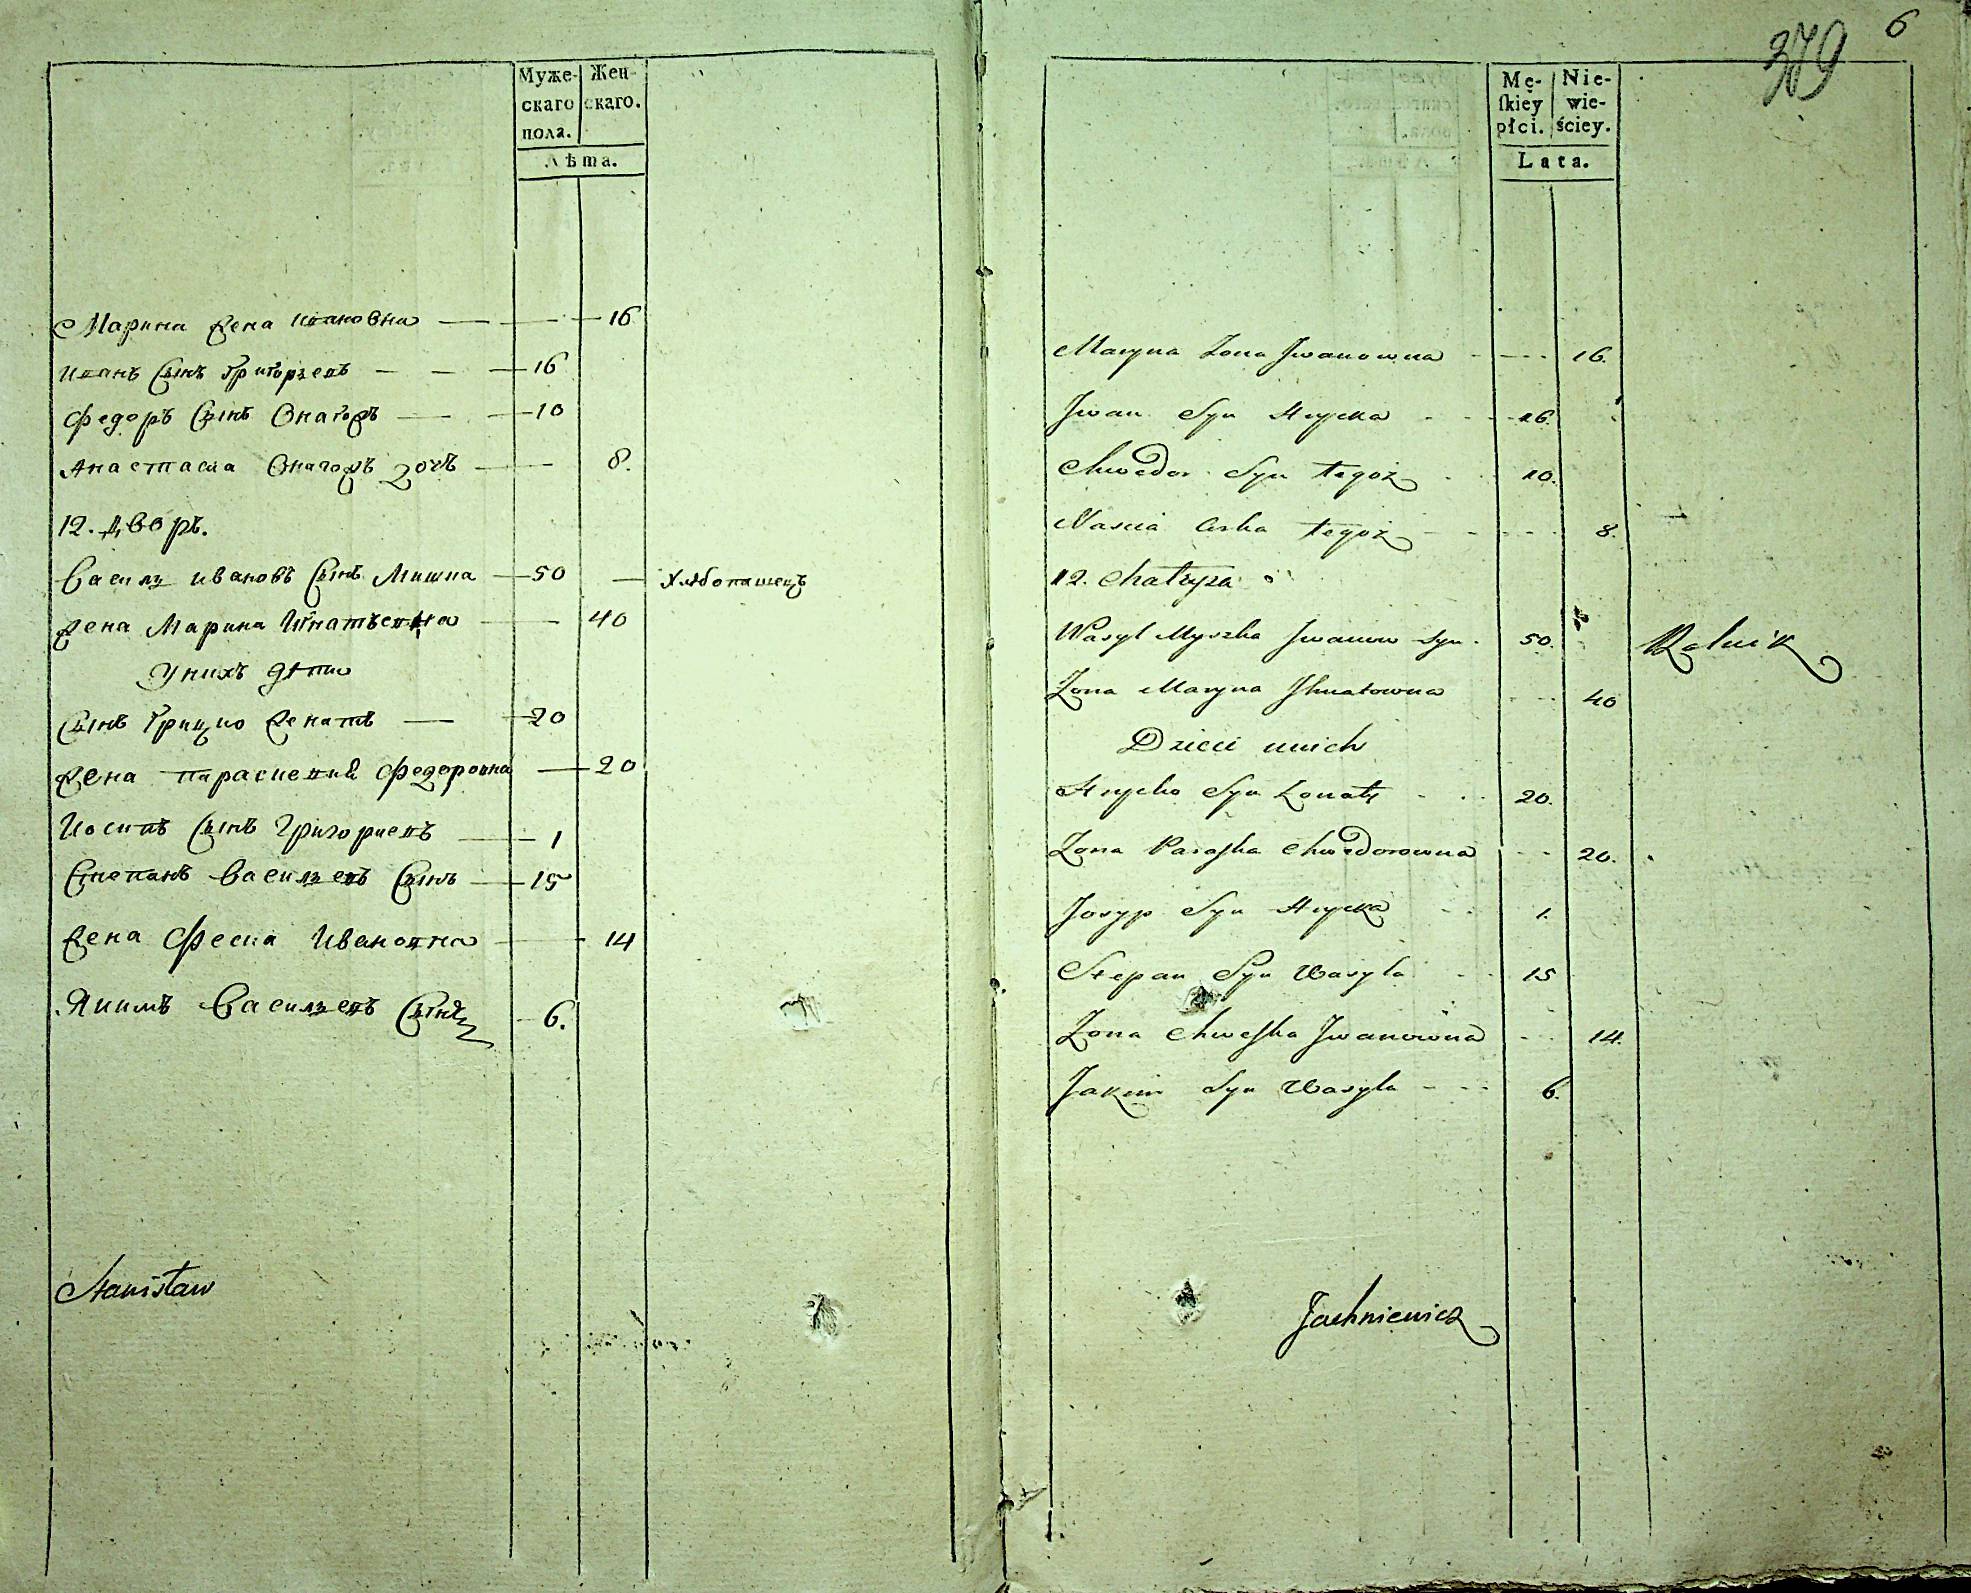 Муже- Жен-
скаго скаго.
пола.
Лѣта.
Марина жена Ивановна — — 16
Иванъ Сынъ Григорьевъ — — 16
Федоръ Сынъ Онагожъ — 10
Анастасиа Онагожъ дочь — 8.
12. Дворъ.
Василь Ивановъ Сынъ Мишка — 50 — Хлѣбопашецъ
жена Марина Игнатьевна — 40
Унихъ дѣти
Сынъ Грицко женатъ — 20
жена Параскевия Федоровна — 20
Иосипъ Сынъ Григориевъ — 1
Степанъ Васильевъ Сынъ — 15
жена Феска Ивановна — 14
Якимъ Васильевъ Сынъ — 6.
Stanisław
379 6
Mę- Nie-
skiey wie-
płci. ściey.
Lata.
Maryna Żona Jwanowna - - - - 16.
Jwan Syn Hrycka - - - 16.
Chwedor Syn tegoż - - 10.
Nascia Corka tegoż - - - - 8.
12. Chałupa
Wasyl Myszka Jwanow Syn. 50. Rolnik
Żona Maryna Jhnatowna - - - 40
Dzieci unich
Hrycko Syn Żonaty - - - 20.
Żona Paraska Chwedorowna - - 20.
Josyp Syn Hrycka - - 1.
Stepan Syn Wasyla - - 15
Żona Chweska Jwanowna - - - 14.
Jakim Syn Wasyla - - - 6.
Jachniewicz